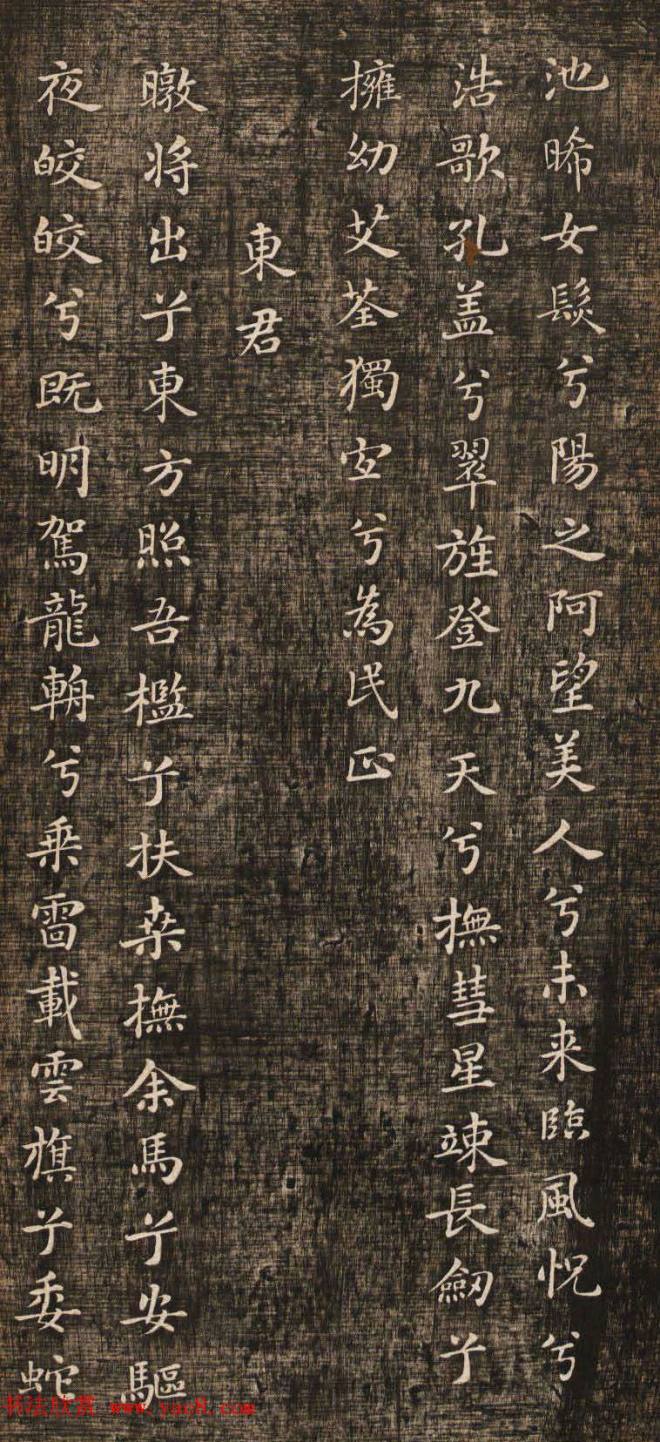 池晞女髮兮陽之阿望美人兮未来臨風怳兮
浩歌孔盖兮翠旌登九天兮撫彗星竦長劒兮
擁幼艾荃獨宜兮為民正
東君
暾将出兮東方照吾檻兮扶桒撫余馬兮安驅
夜皎皎兮既明駕龍輈兮乗雷載雲旗兮委蛇
书法欣赏 www.yac8.com